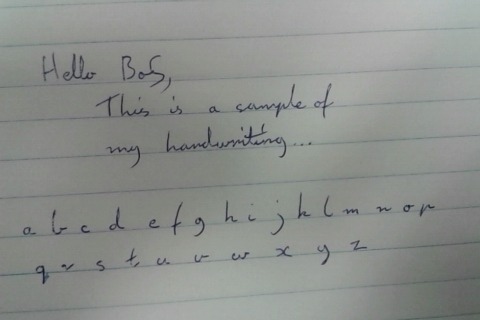 Hello Bob,
This is a sample of
my handwriting...
a b c d e f g h i j k l m n o p
q r s t u v w x y z